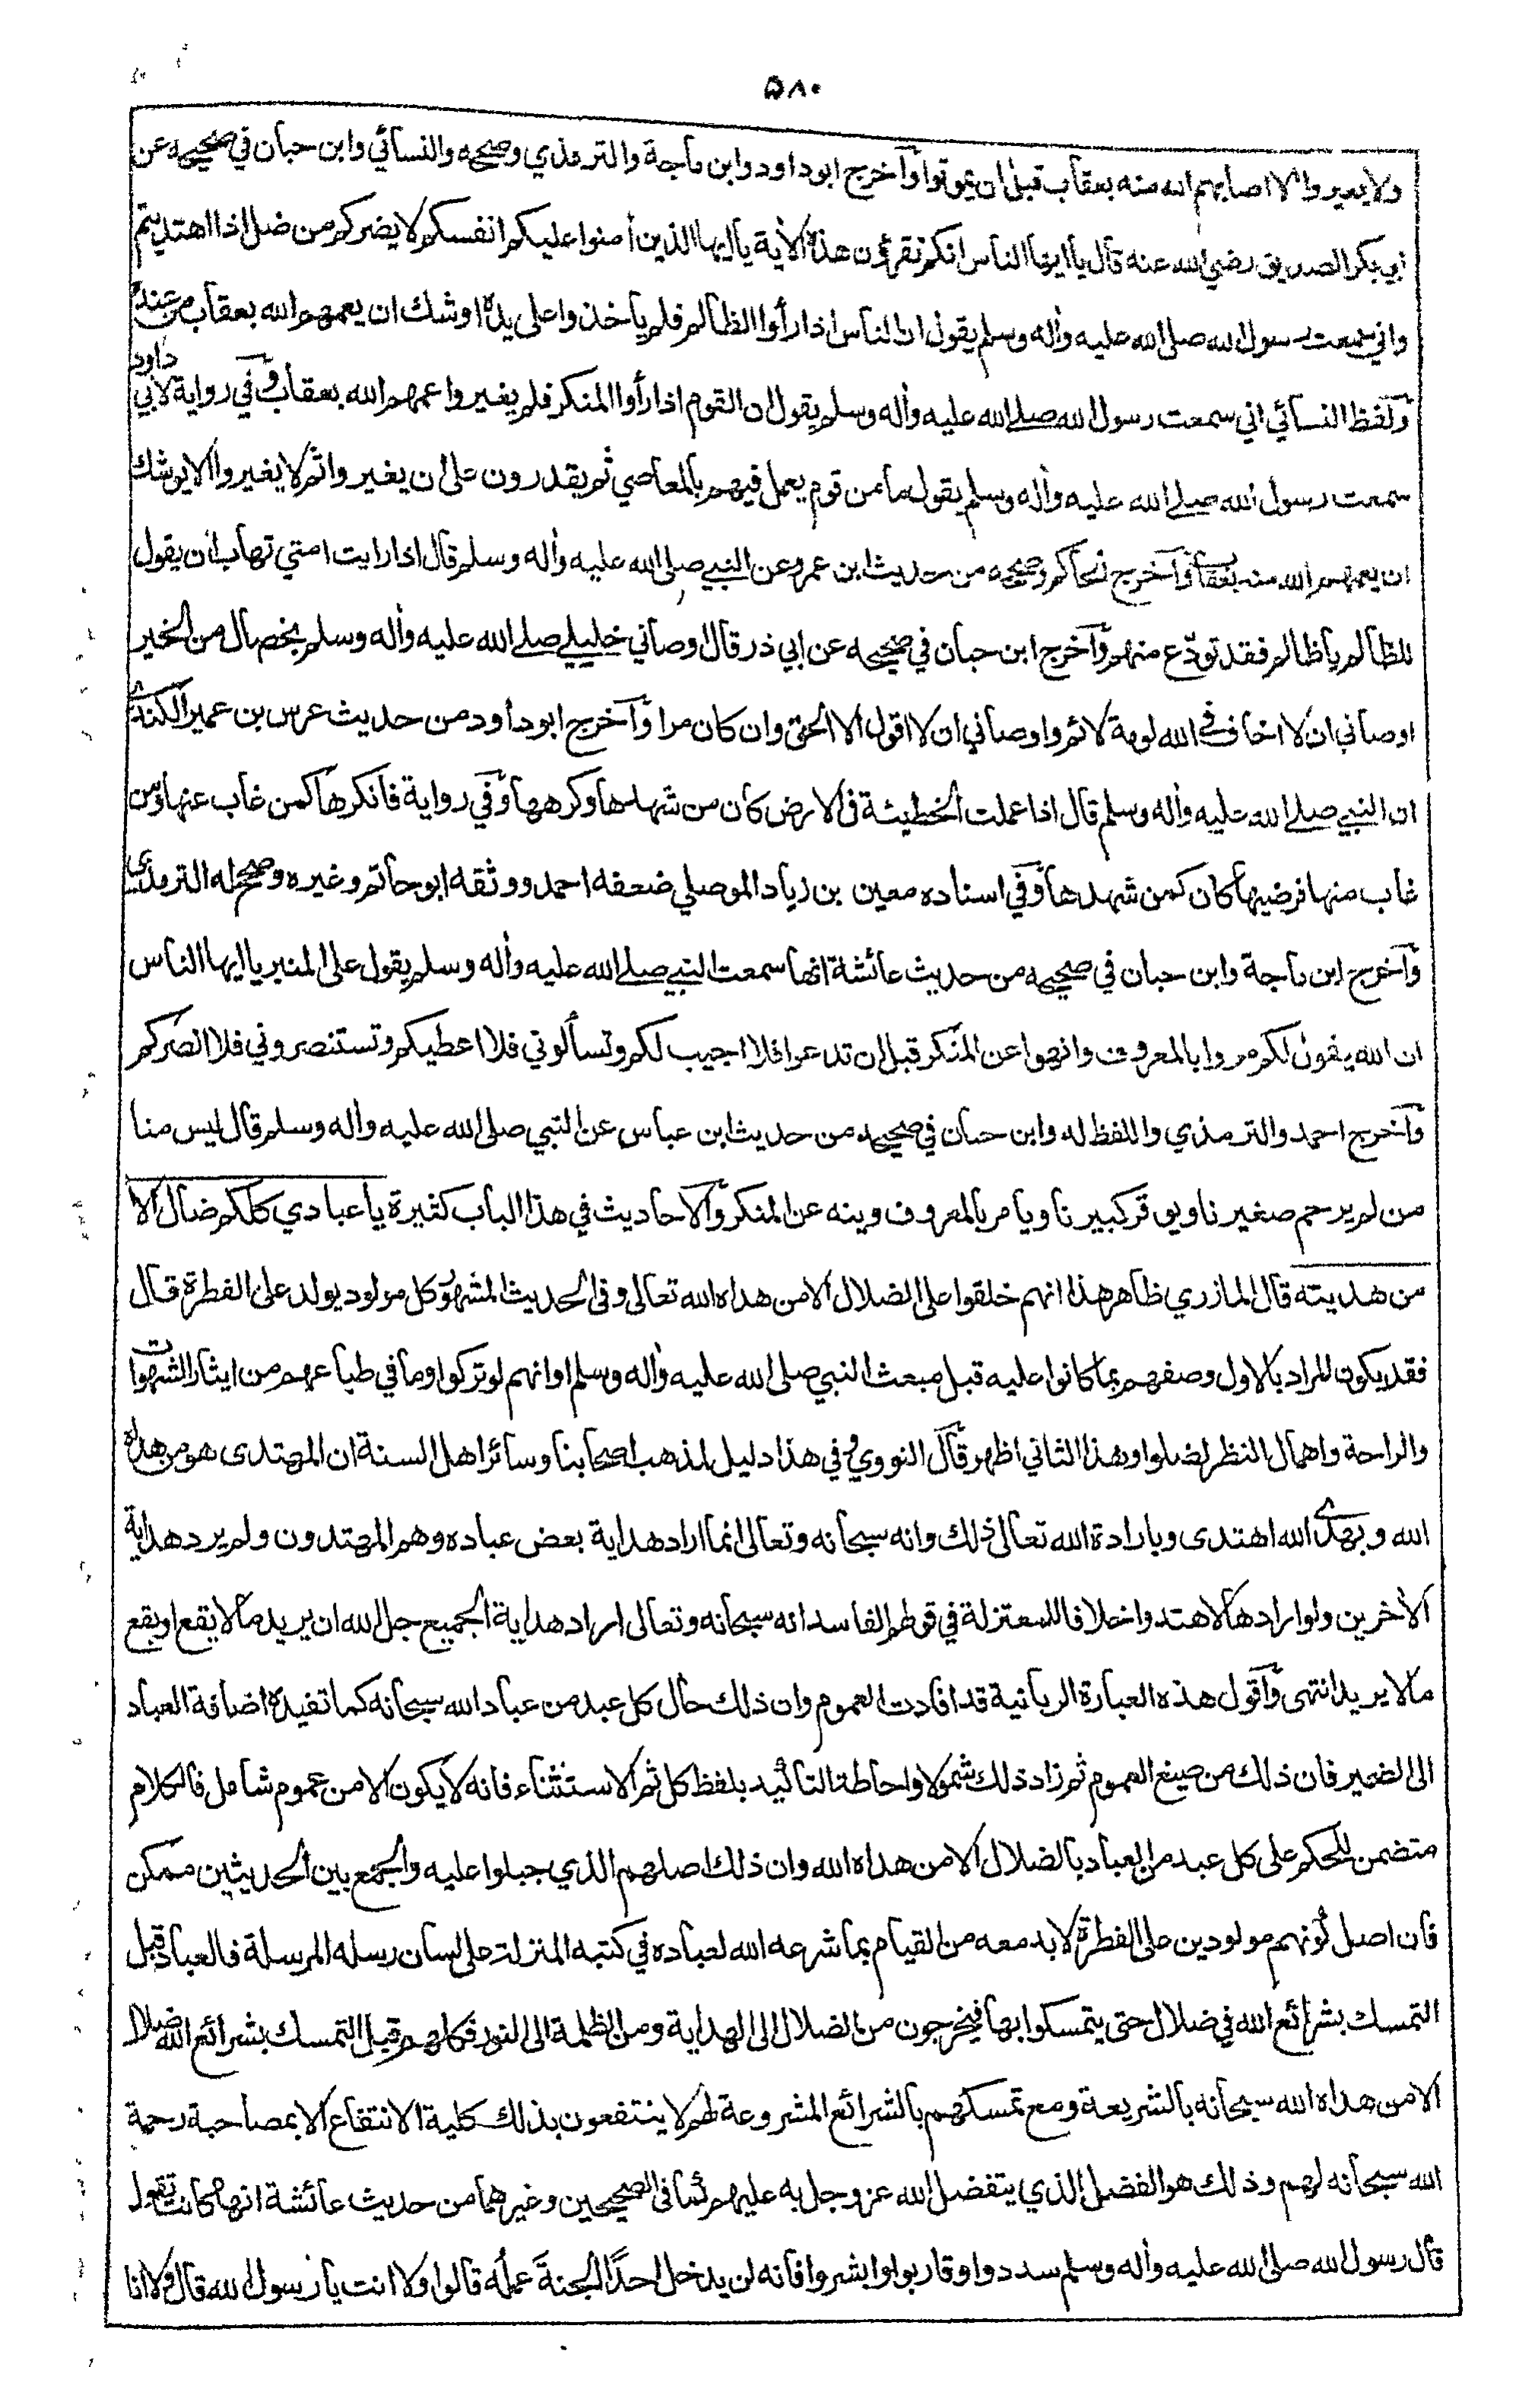 ۵۸۰
ولا يغيروا الا اصابهم الله منه بعقاب قبل ان يموتوا وآخرج ابوداود وابن ماجة والترمذي وصححه والنسائي وابن حبان في صحيحه عن
ابي بكر الصديق رضي الله عنه قال يا ايها الناس انكم تقرؤن هذه الأية يا ايها الذين أمنوا عليكم انفسكم لا يضركم من ضل اذا اهتديتم
واني سمعت رسول الله صلى الله عليه وأله وسلم يقول ان الناس اذا رأوا الظالم فلم يأخذوا على يده اوشك ان يعمهم الله بعقاب من عنده
ولفظ النسائي اني سمعت رسول الله صلے الله عليه وأله وسلم يقول ان القوم اذا رأوا المنكر فلم يغيروا عمهم الله بعقاب وفي رواية لابي داود
سمعت رسول الله صلے الله عليه وأله وسلم يقول ما من قوم يعمل فيهم بالمعاصي ثم يقدرون على ان يغيروا ثم لا يغيروا الا يوشك
ان يعمهم الله منه بعقاب وآخرج الحاكم وصححه من حديث ابن عمرو عن النبي صلى الله عليه وأله وسلم قال اذا رايت امتي تهاب ان يقول
للظالم يا ظالم فقد تودّع منهم وآخرج ابن حبان في صحيحه عن ابي ذر قال اوصاني خليلي صلے الله عليه وأله وسلم بخصال من الخير
اوصاني ان لا اخاف في الله لومة لائم واوصاني ان لا اقول الا الحق وان كان مرا وآخرج ابوداود من حديث عرس بن عميرالكندي
ان النبي صلے الله عليه وأله وسلم قال اذا عملت الخطيئة فى الارض كان من شهدها وكرهها وفي رواية فانكرها كمن غاب عنها ومن
غاب منها فرضيها كان كمن شهدها وفي اسناده معين بن زياد الموصلي ضعفه احمد ووثقه ابو حاتم وغيره وصحح له الترمذي
وآخرج ابن ماجة وابن حبان في صحيحه من حديث عائشة انها سمعت النبي صلے الله عليه وأله وسلم يقول على المنبر يا ايها الناس
ان الله يقول لكم مروا بالمعروف وانهوا عن المنكر قبل ان تدعوا فلا اجيب لكم وتسألوني فلا اعطيكم وتستنصروني فلا انصركم
وآخرج احمد والترمذي واللفظ له وابن حبان في صحيحه من حديث ابن عباس عن النبي صلى الله عليه وأله وسلم قال ليس منا
من لم يرحم صغيرنا ويوقر كبيرنا ويامر بالمعروف وينه عن المنكر والاحاديث في هذا الباب كثيرة يا عبادي كلكم ضال الا
من هديته قال المازري ظاهر هذا انهم خلقوا على الضلال الا من هداه الله تعالى وفى الحديث المشهور كل مولود يولد على الفطرة قال
فقد يكون المراد بالاول وصفهم بما كانوا عليه قبل مبعث النبي صلى الله عليه وأله وسلم او انهم لو تركوا وما في طباعهم من ايثار الشهوات
والراحة واهمال النظر لضلوا وهذا الثاني اظهر قال النووي وفي هذا دليل لمذهب اصحابنا وسائر اهل السنة ان المهتدى هو من هداه
الله وبهدى الله اهتدى وبارادة الله تعالى ذلك وانه سبحانه وتعالى انما اراد هداية بعض عباده وهم المهتدون ولم يرد هداية
الأخرين ولو ارادها لاهتدوا خلافا للمعتزلة في قولهم الفاسد انه سبحانه وتعالى اراد هداية الجميع جل الله ان يريد مالا يقع او يقع
مالا يريد انتهى وآقول هذه العبارة الربانية قد افادت العموم وان ذلك حال كل عبد من عباد الله سبحانه كما تفيده اضافة العباد
الى الضمير فان ذلك من صيغ العموم ثم زاد ذلك شمولا واحاطة التاكيد بلفظ كل ثم الاستثناء فانه لا يكون الا من عموم شامل فالكلام
متضمن للحكم على كل عبد من العباد بالضلال الا من هداه الله وان ذلك اصلهم الذي جبلوا عليه والجمع بين الحديثين ممكن
فان اصل كونهم مولودين على الفطرة لا بد معه من القيام بما شرعه الله لعباده في كتبه المنزلة على لسان رسله المرسلة فالعباد قبل
التمسك بشرائع الله في ضلال حتى يتمسكوا بها فيخرجون من الضلال الى الهداية ومن الظلمة الى النور فكلهم قبل التمسك بشرائع الله ضلال
الا من هداه الله سبحانه بالشريعة ومع تمسكهم بالشرائع المشروعة لهم لا ينتفعون بذلك كلية الانتفاع الا بمصاحبة رحمة
الله سبحانه لهم وذلك هو الفضل الذي يتفضل الله عز وجل به عليهم كما فى الصحيحين وغيرهما من حديث عائشة انها كانت تقول
قال رسول الله صلى الله عليه وأله وسلم سددوا وقاربوا وابشروا فانه لن يدخل احدًا الجنةَ عملُه قالوا ولا انت يا رسول الله قال ولا انا